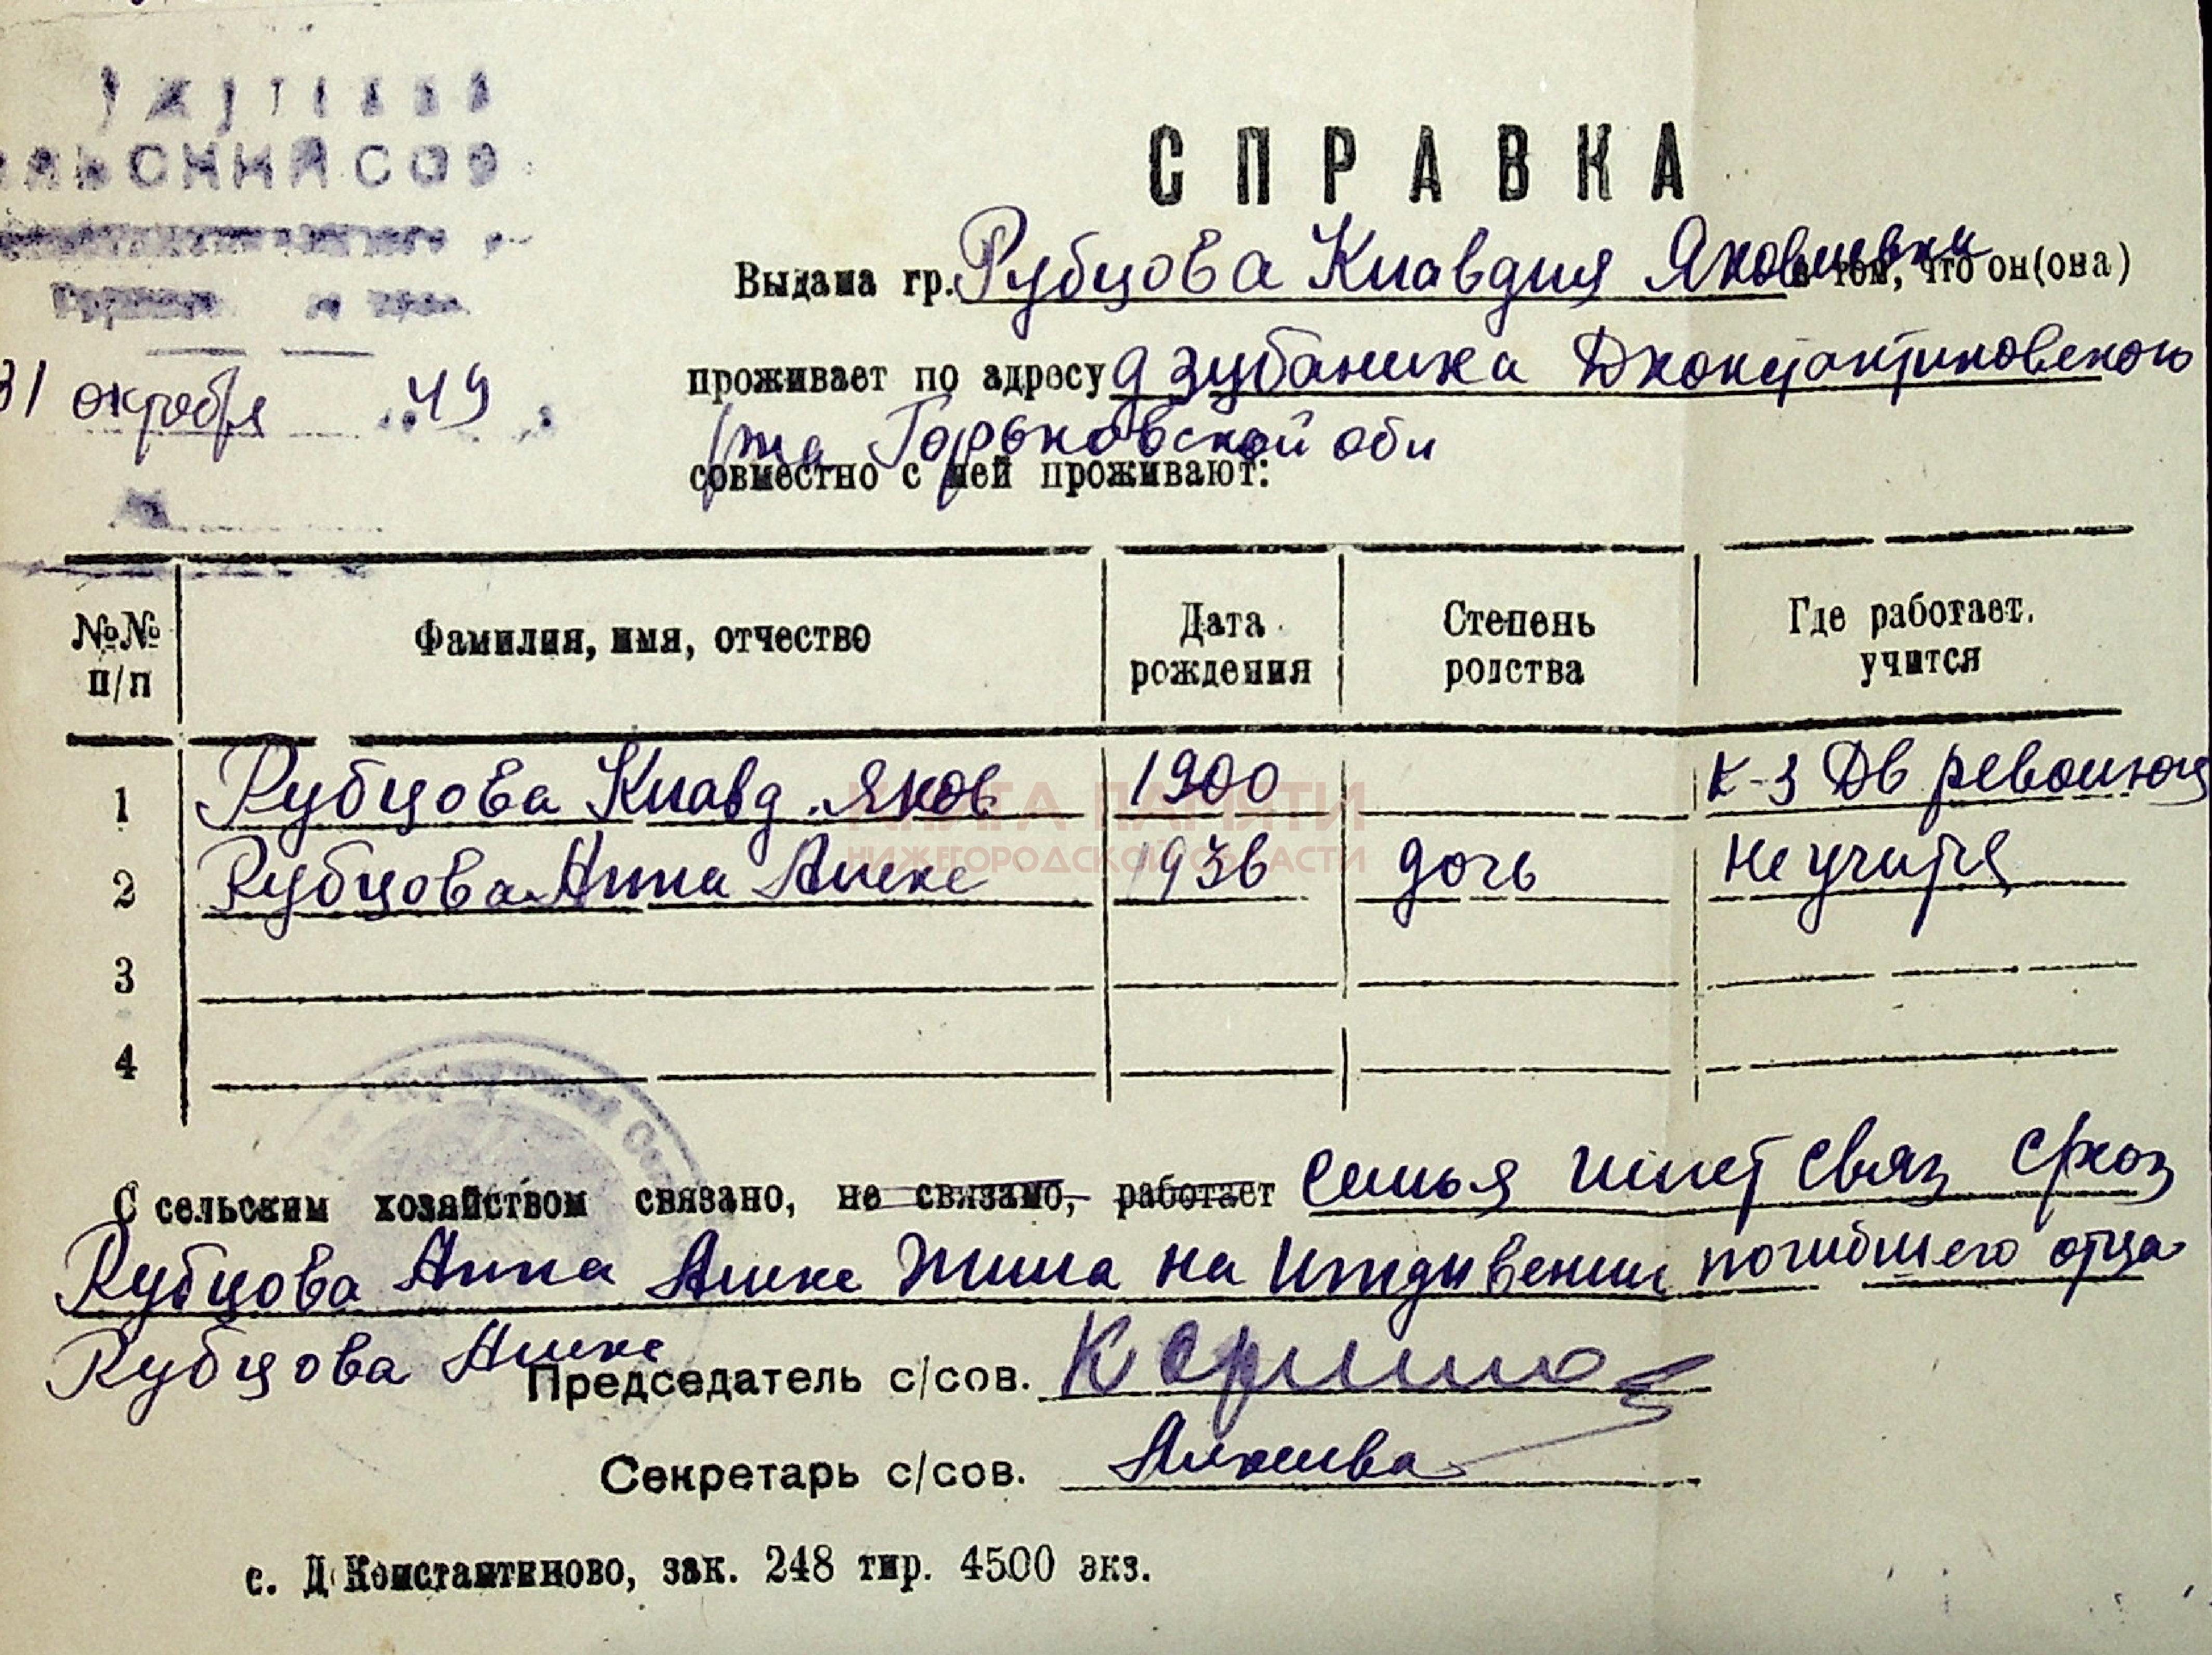 ЛЬСКИЙ СОВ
31 октября 49
СПРАВКА
Выдана гр. Рубцова Клавдия Яковлевна в том, что он(она)
проживает по адресу д Зубаниха Дконстантиновского
р/на Горьковской обл
совместно с ней проживают:
№№ п/п
Фамилия, имя, отчество
Дата рождения
Степень родства
Где работает. учится
1 Рубцова Клавд. Яков 1900 К-з Дв революц
2 Рубцова Анна Алекс 1936 дочь не учится
3
4
С сельским хозяйством связано, не связано, работает семья имет связ схоз
Рубцова Анна Алекс жила на иждивении погибшего отца
Рубцова Алекс
Председатель с/сов.
Секретарь с/сов.
с. Д Константиново, зак. 248 тир. 4500 экз.
КНИГА ПАМЯТИ
НИЖЕГОРОДСКОЙ ОБЛАСТИ